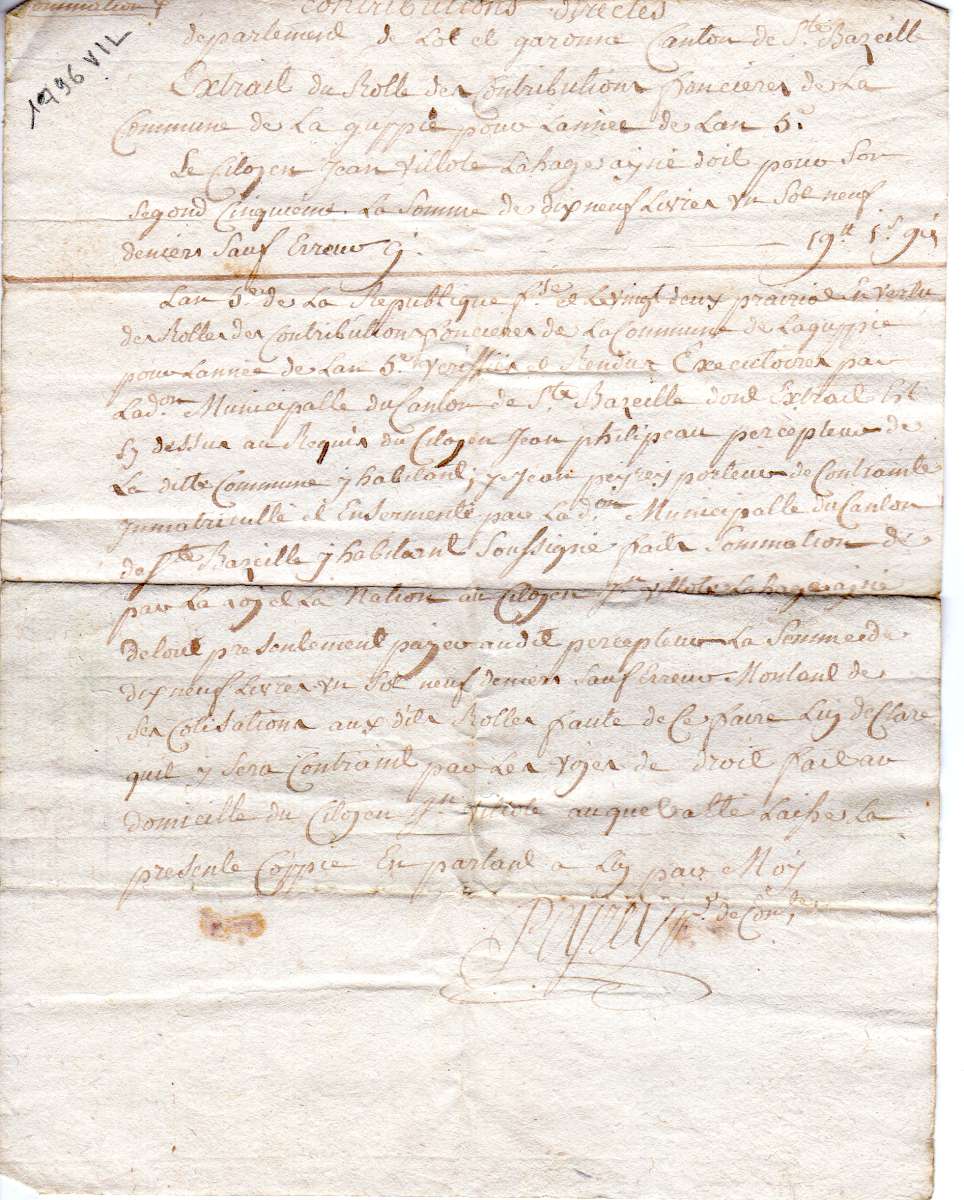 sommation
contributions directes
departement de Lot et garonne Canton de Ste Bazeille
1796 VIL
Extrait du Rolle des Contributions foncieres de La
Commune de La guppie pour Lannee de Lan 5e
Le Citoyen Jean Villote Lahage ayné doit pour son
segond Cinquiéme La somme de dix neuf Livres un sol neuf
deniers sauf Erreur cy. 19tt 1s 9d
Lan 5e de La Republique fse et Le vingt deux prairial En vertu
des Rolles des Contributions foncieres de La Commune de La guppie
pour Lannée de Lan 5e veriffiés et Rendus Executoires par
Ladon Municipalle du Canton de Ste Bazeille dont Extrait Est
cy dessus au Requis du Citoyen Jean philipeau percepteur de
La ditte Commune y habitant, je Jean peyrey porteur de Contrainte
Inmatricullé et Ensermenté par Ladon Municipalle du Canton
de Ste Bazeille y habitant soussigné fait sommation de
par La Loy et La Nation au Citoyen Jn villote Lahage ayné
de tout presentement payer audit percepteur La somme de
dix neuf Livres un sol neuf deniers sauf Erreur Montant de
ses Cotisations aux dits Rolles faute de Ce faire Luy declare
quil y sera Contraint par Les voyes de droit fait au
domicille du Citoyen Jn villote auquel a été Laissé La
presente Coppie En parlant a Luy par Moy
Peyrey pr de Conte